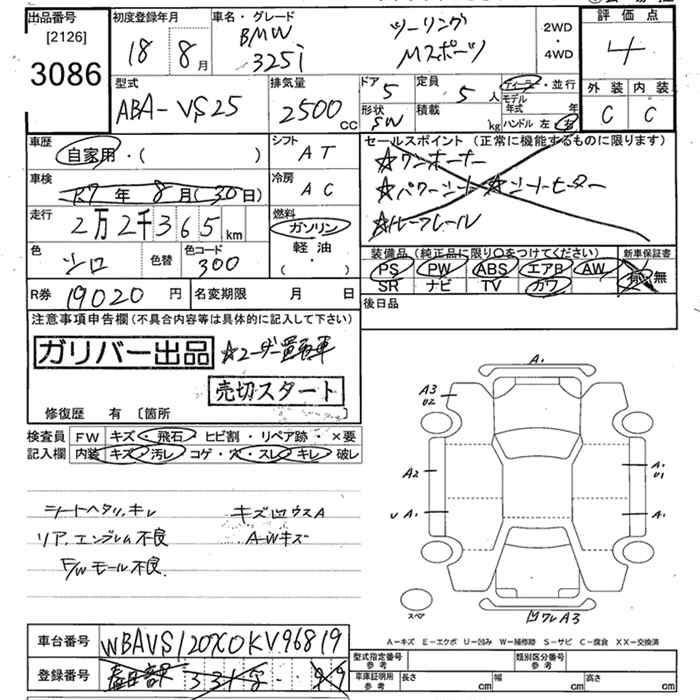 出品番号
[2126]
3086
初度登録年月
18 8月
車名・グレード
BMW
325i
ツーリング
Mスポーツ
2WD
・
4WD
評価点
4
外装 内装
C C
型式
ABA-VS25
排気量
2500
cc
ドア
5
定員
5人
ディーラー・並行
モデル
年式 年
形状
SW
積載
kg
ハンドル 左・右
車歴
自家用・( )
シフト
AT
セールスポイント (正常に機能するものに限ります)
☆ワンオーナー
☆パワーシート☆シートヒーター
☆ルーフレール
車検
R7年 8月(30日)
冷房
AC
走行
2万2千365km
燃料
ガソリン
軽油
( ・ )
色
シロ
色替
色コード
300
装備品 (純正品に限り○をつけてください)
新車保証書
PS PW ABS エアB AW
有・無
SR ナビ TV カワ
R券
19020円
名変期限 月 日
後日品
注意事項申告欄(不具合内容等は具体的に記入して下さい)
ガリバー出品
☆ユーザー買取車
売切スタート
修復歴 有〔箇所 〕
検査員 FW キズ・飛石・ヒビ割・リペア跡・×要
記入欄 内装 キズ・汚レ・コゲ・穴・スレ・キレ・破レ
シートヘタリ,キレ
キズ凹ウスA
リア,エンブレム不良
A-Wキズ
F/Wモール不良
A1
A3
U2
A2
A1
U1
U A1
A1
スペア
ワレA3
車台番号
WBAVS120X0KV96819
登録番号
A-キズ E-エクボ U-凹み W-補修跡 S-サビ C-腐食 XX-交換済
型式指定番号
参考
類別区分番号
参考
車庫証明用
参考
長さ cm
幅 cm
高さ cm